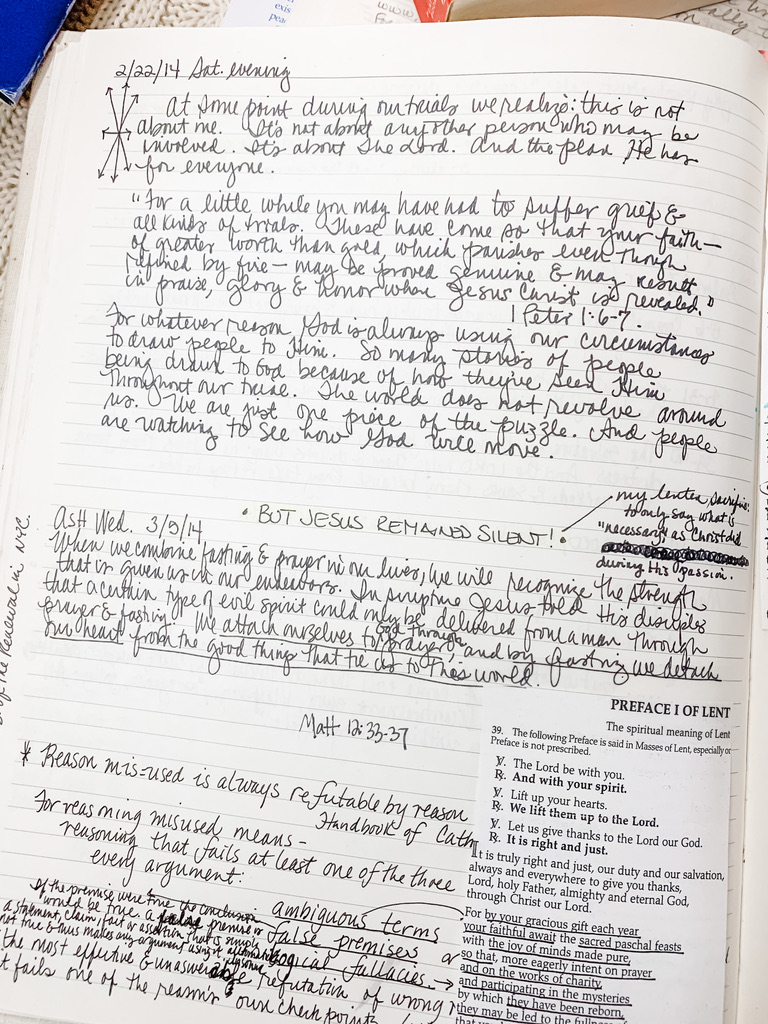 2/22/14 Sat. evening
At some point during our trials we realize: this is not
about me. It's not about any other person who may be
involved. It's about The Lord. And the plan He has
for everyone.
"For a little while you may have had to suffer grief &
all kinds of trials. These have come so that your faith—
of greater worth than gold, which parishes even though
refined by fire— may be proved genuine & may result
in praise, glory & honor when Jesus Christ is revealed."
1 Peter 1:6-7.
For whatever reason God is always using our circumstances
to draw people to Him. So many stories of people
being drawn to God because of how they've seen Him
throughout our trial. The world does not revolve around
us. We are just one piece of the puzzle. And people
are watching to see how God will move.
my lenten sacrifice:
to only say what is
"necessary" as Christ did
during His passion.
• BUT JESUS REMAINED SILENT! •
Ash Wed. 3/5/14
When we combine fasting & prayer in our lives, we will recognize the strength
that is given us in our endeavors. In scripture Jesus told His disciples
that a certain type of evil spirit could only be delivered from a man through
prayer & fasting. We attach ourselves to God through
prayer, and by fasting we detach
our heart from the good things that tie us to this world.
of the Renewal in NYC.
Matt 12:33-37
* Reason mis-used is always refutable by reason
Handbook of Cath
For reasoning misused means—
reasoning that fails at least one of the three
every argument:
ambiguous terms
false premises or
logical fallacies. →
If the premise were true the conclusion
would be true. a false premise is
a statement, claim, fact or assertion that is simply
not true & thus makes any argument using it
the most effective & unanswerable refutation of wrong
t fails one of the reason's own check points
PREFACE I OF LENT
The spiritual meaning of Lent
39. The following Preface is said in Masses of Lent, especially or
Preface is not prescribed.
V. The Lord be with you.
R. And with your spirit.
V. Lift up your hearts.
R. We lift them up to the Lord.
V. Let us give thanks to the Lord our God.
R. It is right and just.
It is truly right and just, our duty and our salvation,
always and everywhere to give you thanks,
Lord, holy Father, almighty and eternal God,
through Christ our Lord.
For by your gracious gift each year
your faithful await the sacred paschal feasts
with the joy of minds made pure,
so that, more eagerly intent on prayer
and on the works of charity,
and participating in the mysteries
by which they have been reborn,
they may be led to the fullness